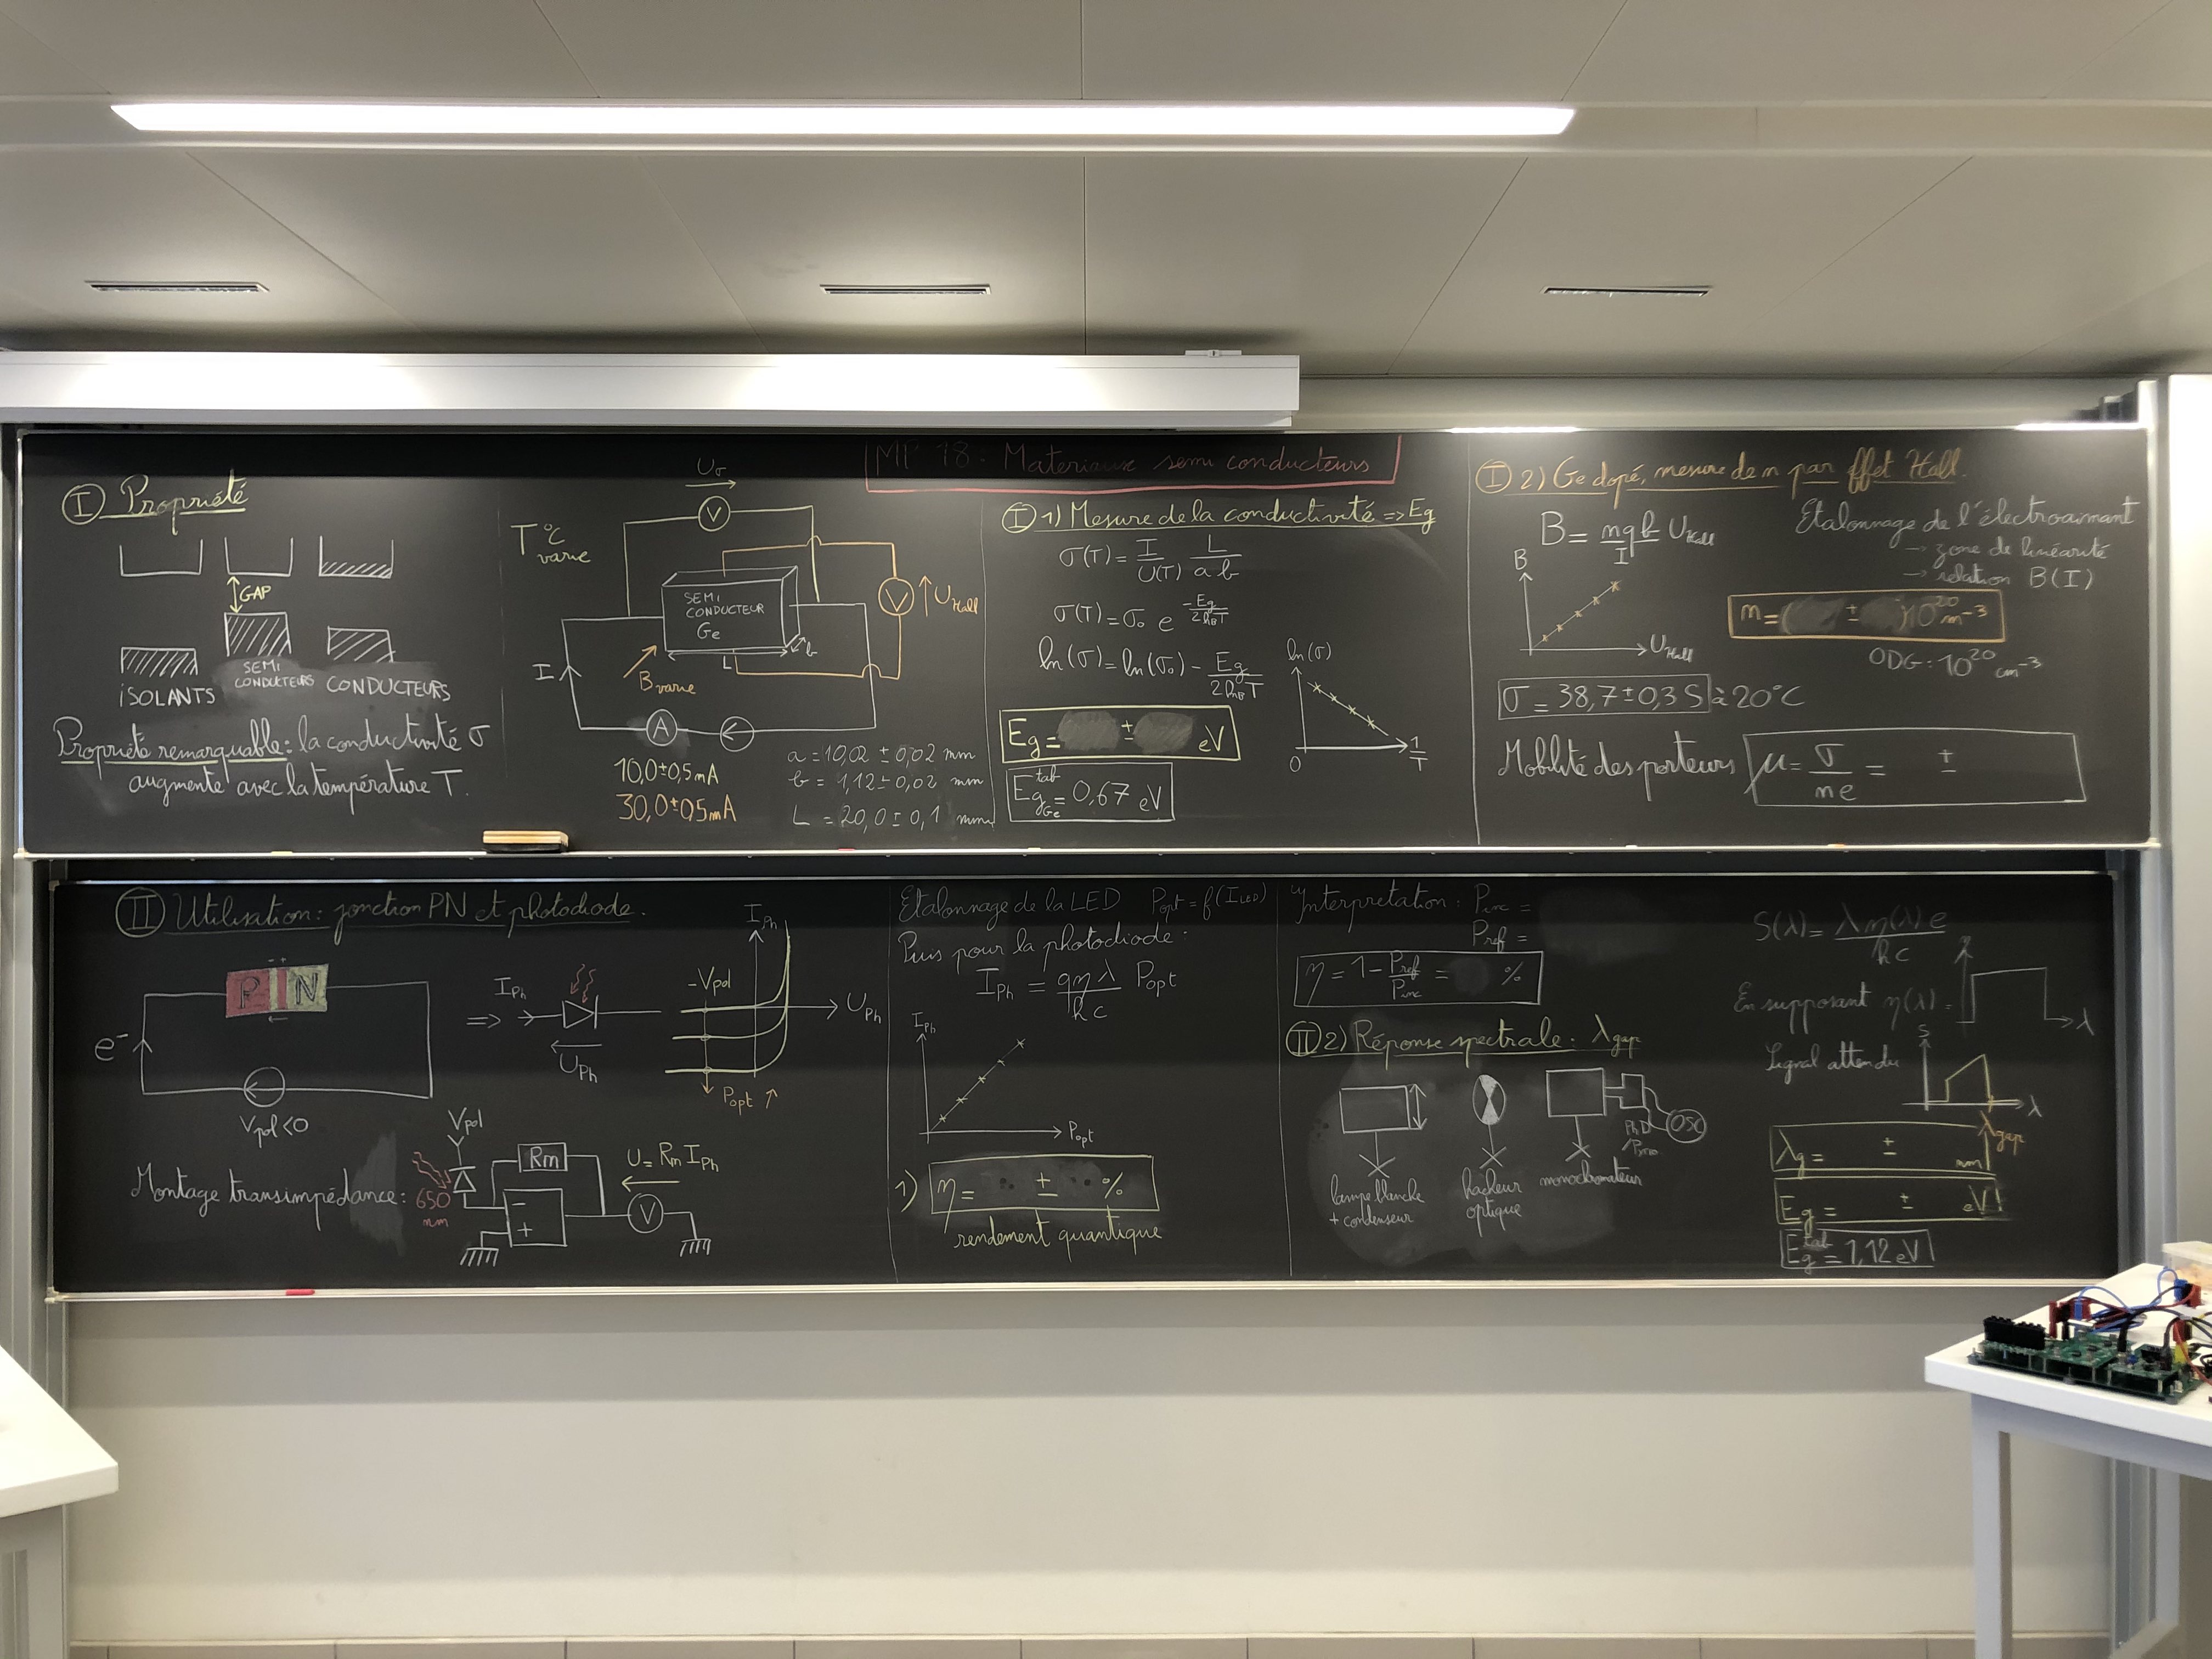 MP 18: Materiaux semi conducteurs
I Propriété
GAP
ISOLANTS
SEMI
CONDUCTEURS
CONDUCTEURS
Propriété remarquable: la conductivité σ
augmente avec la température T.
T°C
varie
Uσ
V
SEMI
CONDUCTEUR
Ge
V
U Hall
b
L
I
B varie
A
10,0±0,5mA
30,0±0,5mA
a = 10,02 ± 0,02 mm
b = 1,12 ± 0,02 mm
L = 20,0 ± 0,1 mm
I 1) Mesure de la conductivité => Eg
σ(T) = I/U(T) L/ab
σ(T) = σ₀ e^(-Eg/2kBT)
ln(σ) = ln(σ₀) - Eg/2kBT
Eg = ± eV
Eg Ge tab = 0,67 eV
ln(σ)
0
1/T
I 2) Ge dopé, mesure de n par effet Hall.
B = nqb/I U Hall
Etalonnage de l'électroaimant
→ zone de linéarité
→ relation B(I)
B
U Hall
n = ( ± )10²⁰ m⁻³
ODG: 10²⁰ cm⁻³
σ = 38,7 ± 0,3 S à 20°C
Mobilité des porteurs μ = σ/ne = ±
II Utilisation: jonction PN et photodiode.
- +
P N
e⁻
Vpol<0
=> IPh
UPh
IPh
-Vpol
UPh
Popt ↗
Montage transimpédance:
650
nm
Vpol
Rm
-
+
U = Rm IPh
V
Etalonnage de la LED Popt = f(ILED)
Puis pour la photodiode:
IPh = qηλ/hc Popt
IPh
Popt
1) η = ± %
rendement quantique
Interpretation: Pinc =
Pref =
η = 1 - Pref/Pinc = %
II 2) Réponse spectrale: λgap
lampe blanche
+ condenseur
hacheur
optique
monochromateur
PhD
/Pyro
OSC
S(λ) = λη(λ)e/hc
En supposant η(λ) =
η
λ
Signal attendu
S
λ
λgap
λg = ± nm
Eg = ± eV
Eg tab = 1,12 eV